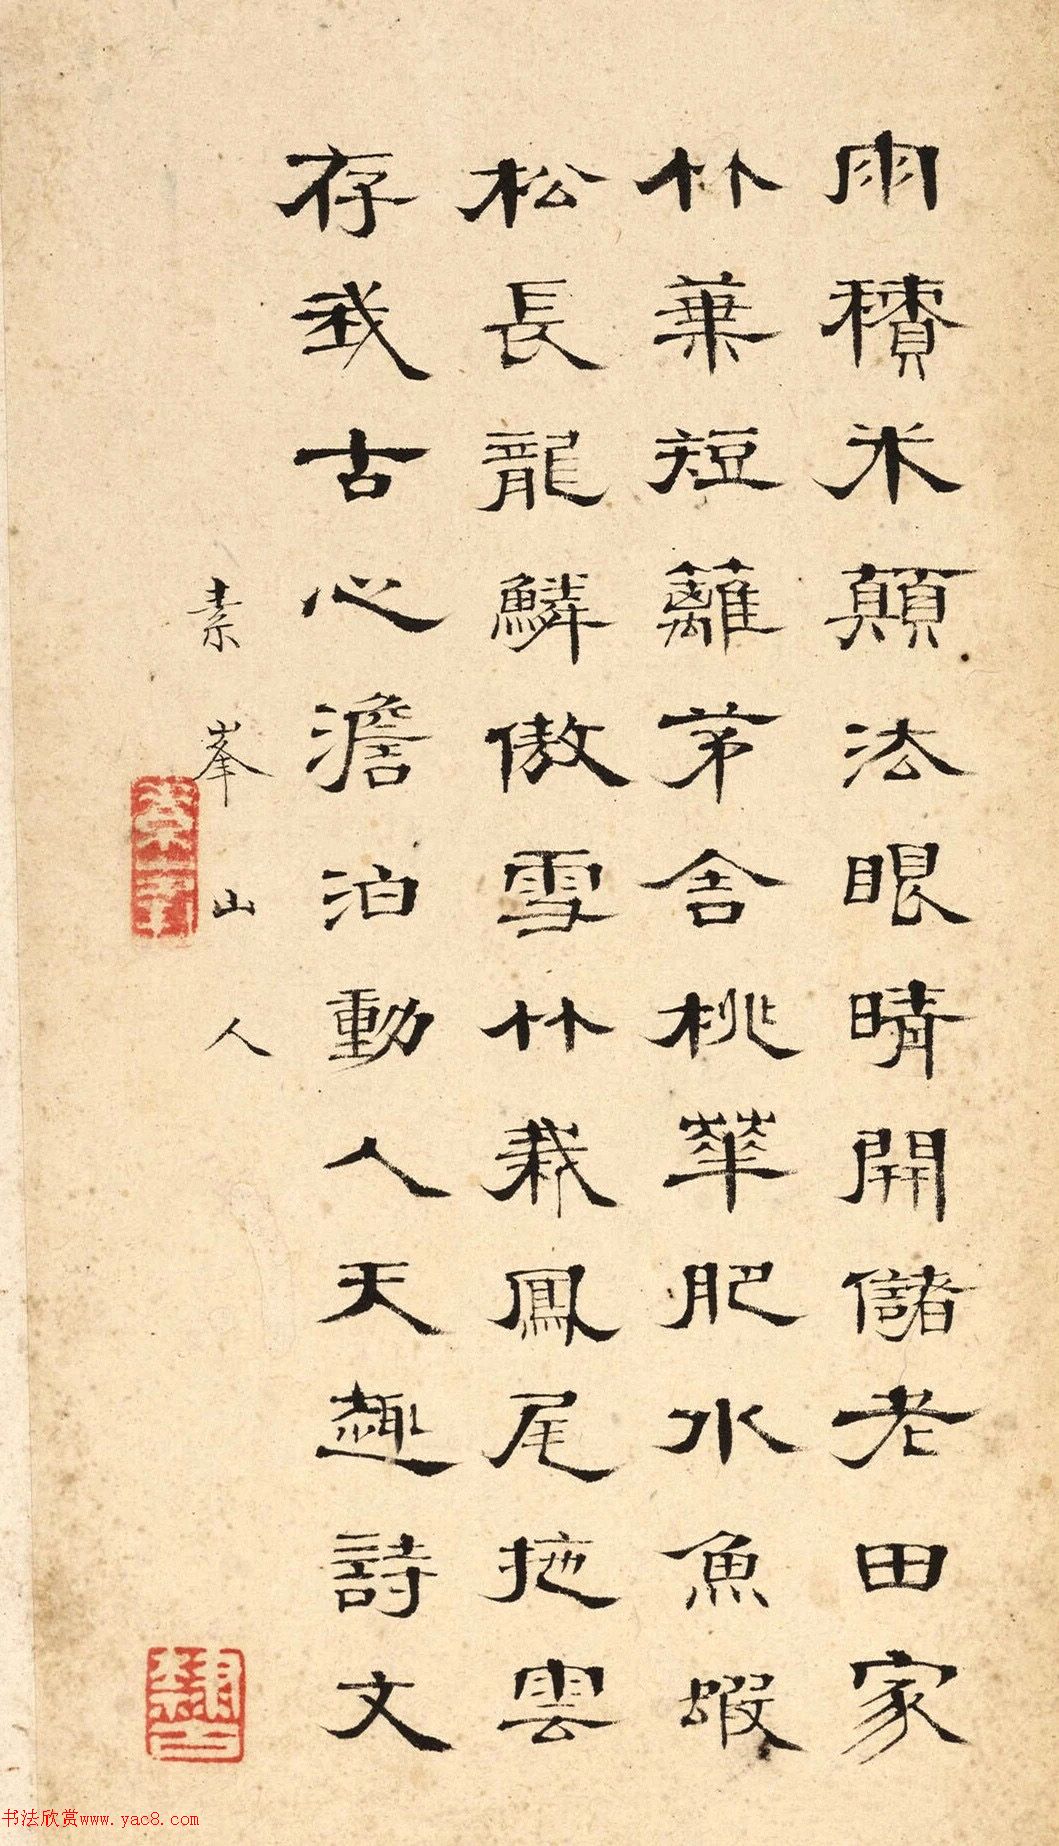 雨積米顛法眼晴開儲老田家
竹葉短籬茅舍桃華肥水魚蝦
松長龍鱗傲雪竹栽鳳尾拖雲
存我古心澹泊動人天趣詩文
素峯山人
书法欣赏www.yac8.com